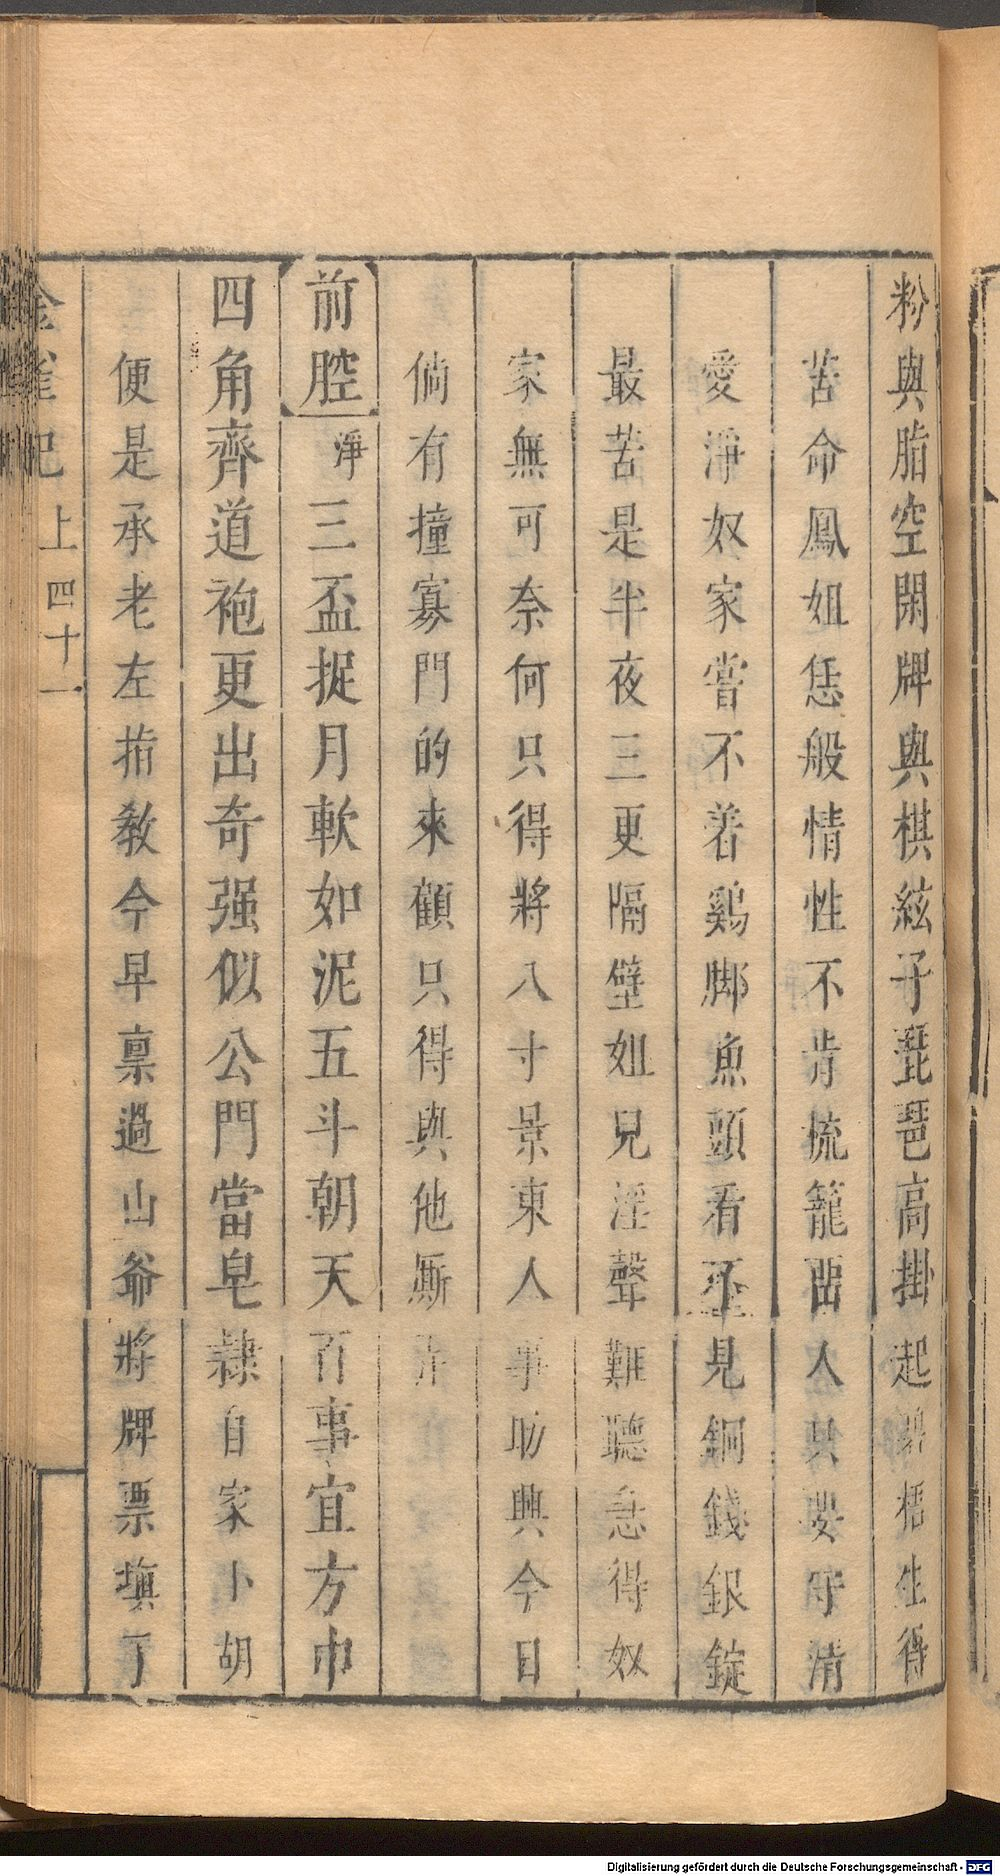 粉與脂空閑牌與棋絃子琵琶高掛起碧梧生得
苦命鳳姐恁般情性不肯梳籠出人只要守清
愛淨奴家嘗不着鷄脚魚頭看不見銅錢銀錠
最苦是半夜三更隔壁姐兒淫聲難聽急得奴
家無可奈何只得將八寸景東人事助興今日
倘有撞寡門的來顧只得與他厮
前腔 淨 三盃捉月軟如泥五斗朝天百事宜方巾
四角齊道袍更出奇强似公門當皂隸自家卜胡
便是承老左指教今早禀過山爺將牌票填了
金雀記 上 四十一
Digitalisierung gefördert durch die Deutsche Forschungsgemeinschaft - DFG